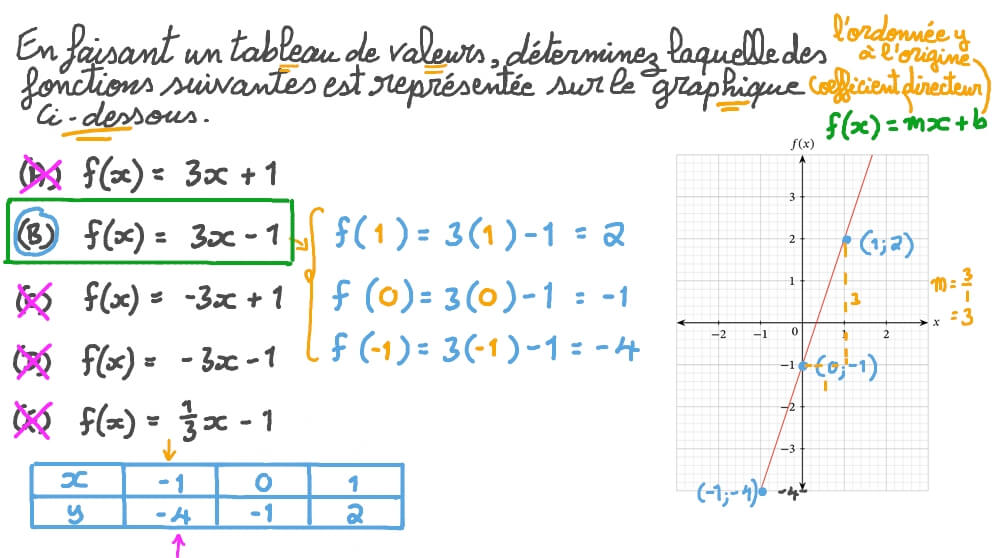 En faisant un tableau de valeurs, déterminez laquelle des
fonctions suivantes est représentée sur le graphique
ci-dessous.
l'ordonnée y
à l'origine
Coefficient directeur
f(x) = mx + b
(A) f(x) = 3x + 1
(B) f(x) = 3x - 1
(C) f(x) = -3x + 1
(D) f(x) = -3x - 1
(E) f(x) = 1/3 x - 1
f(1) = 3(1) - 1 = 2
f(0) = 3(0) - 1 = -1
f(-1) = 3(-1) - 1 = -4
x -1 0 1
y -4 -1 2
f(x)
3
2 (1;2)
1
3
m = 3/1
= 3
−2 −1 0 1 2 x
−1 (0;-1)
1
−2
−3
(-1;-4) −4